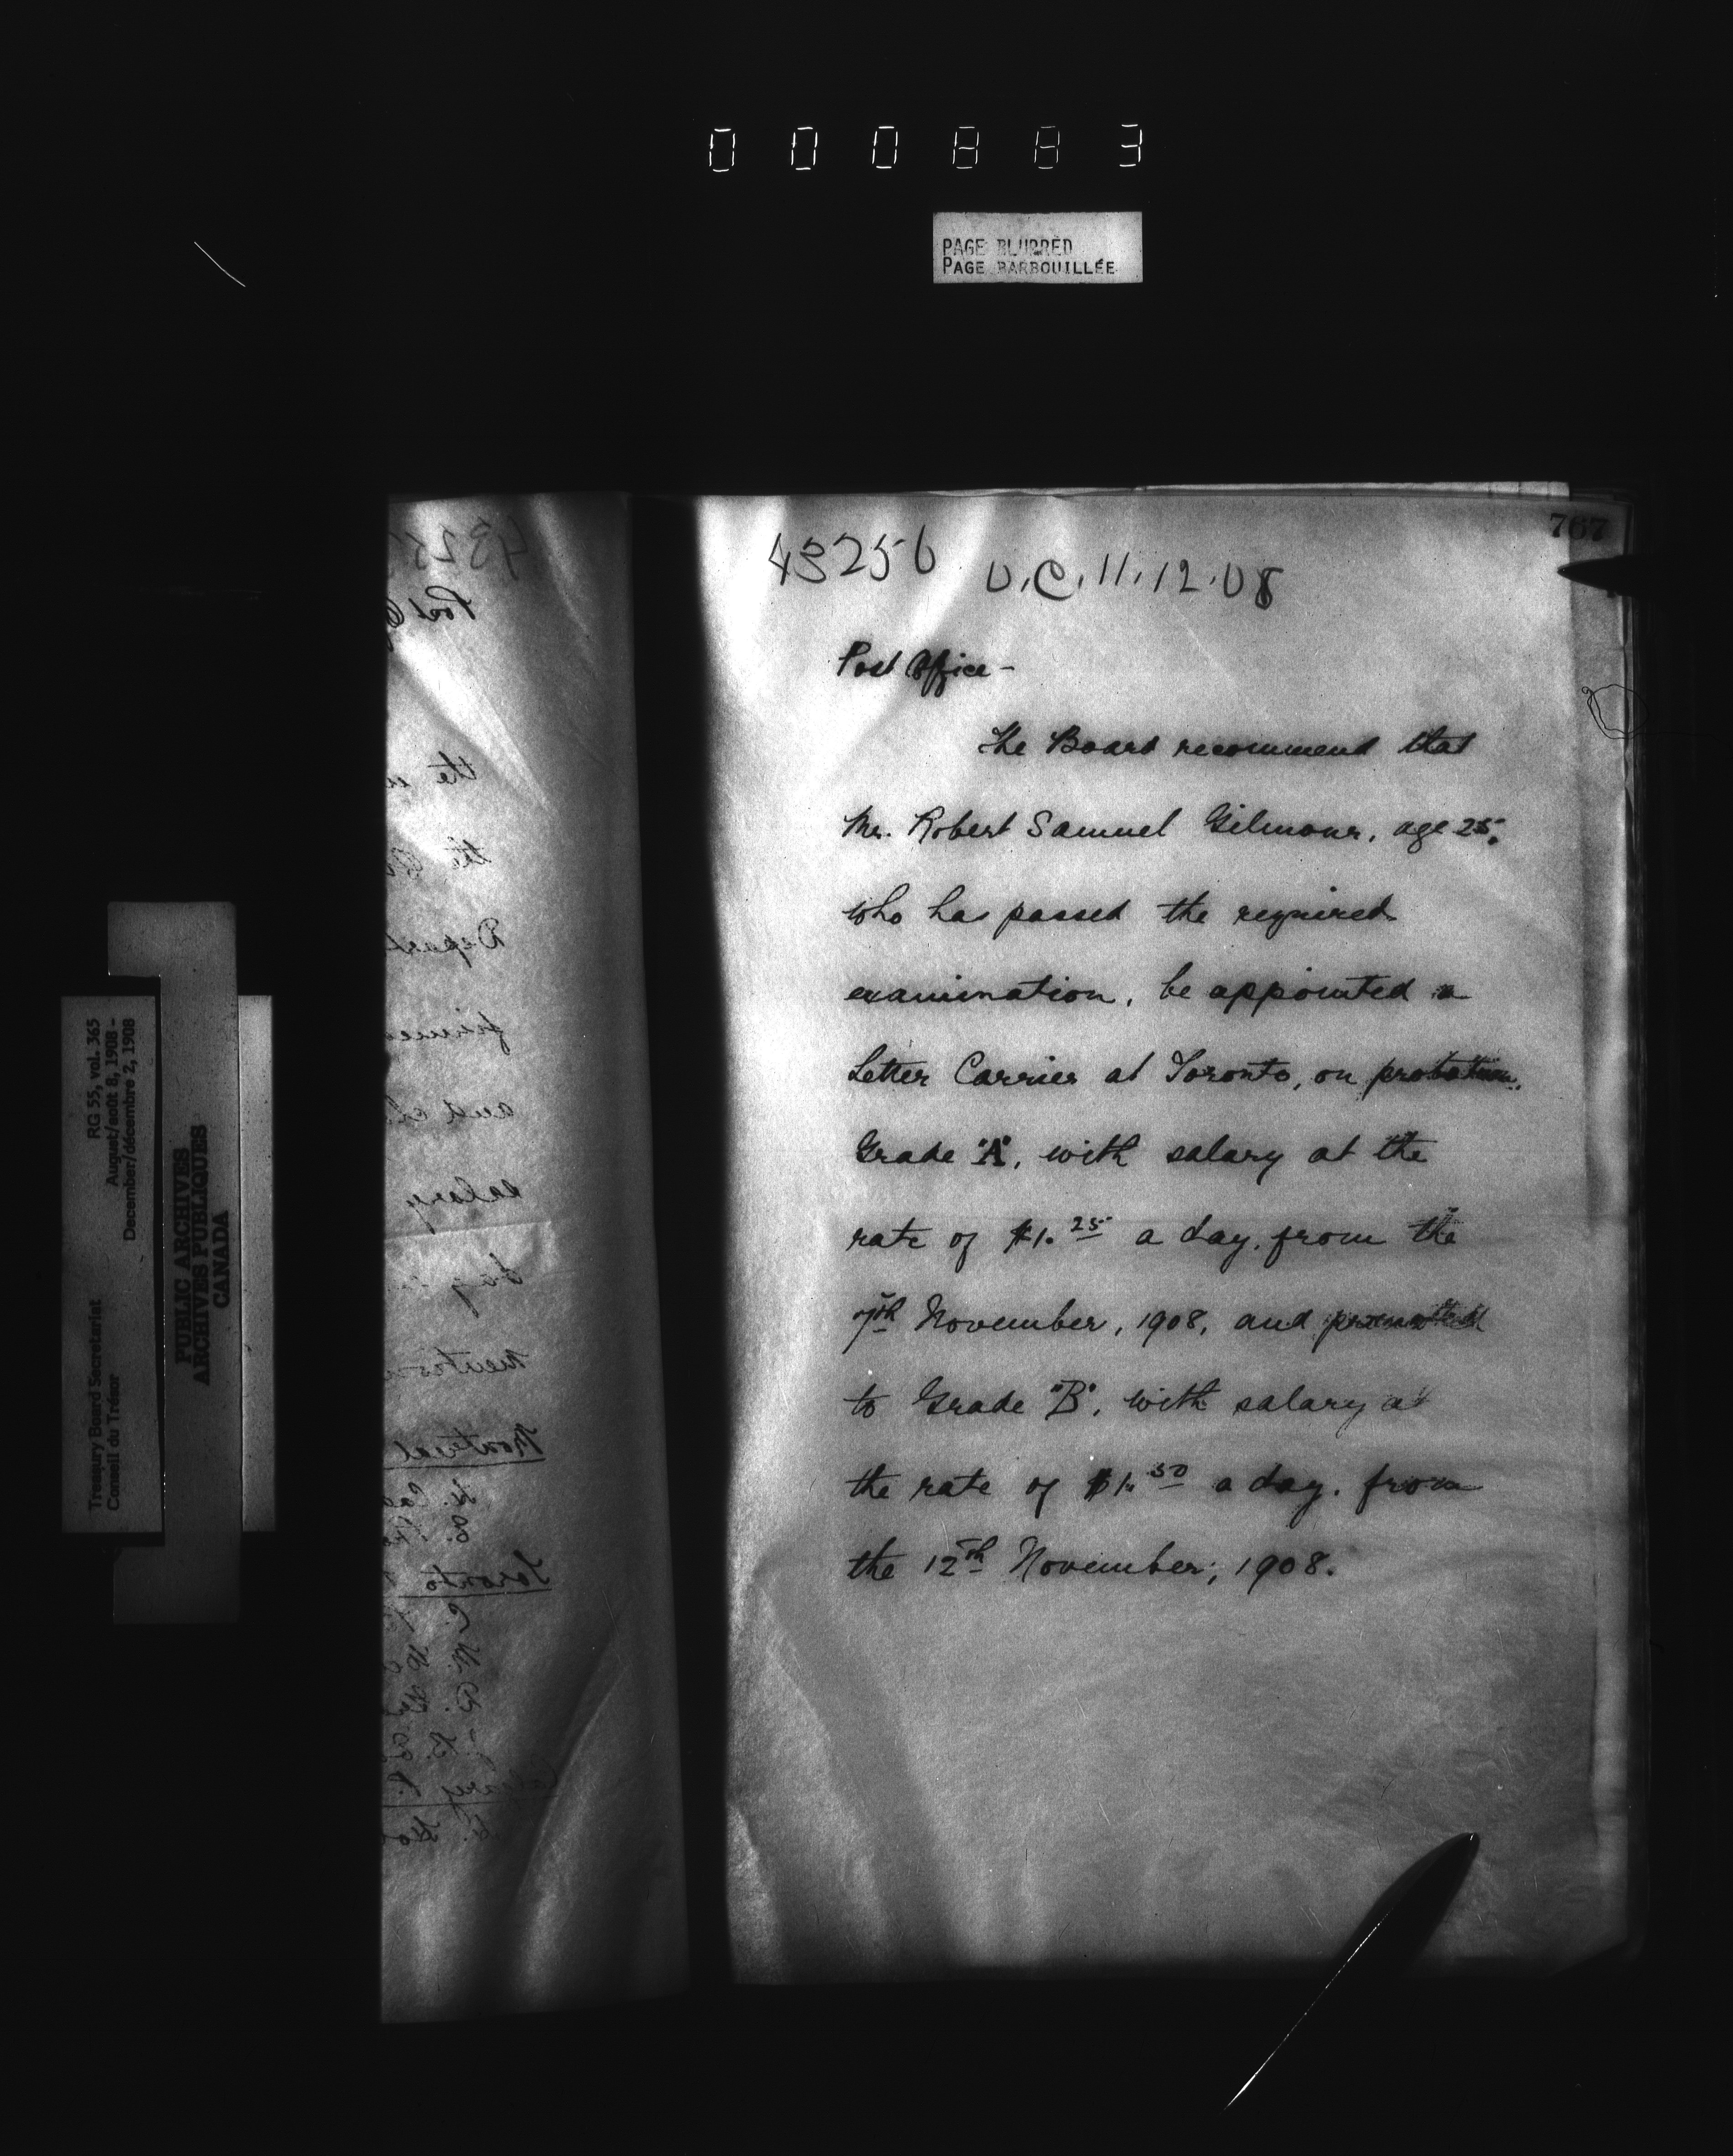 000883
PAGE BLURRED
PAGE BARBOUILLÉE
767
43256 O.C. 11.12.08
Post Office -
The Board recommend that
Mr. Robert Samuel Gilmour, age 25,
who has passed the required
examination, be appointed a
Letter Carrier at Toronto, on probation,
Grade "A", with salary at the
rate of $1.25 a day, from the
7th November, 1908, and promoted
to Grade "B", with salary at
the rate of $1.50 a day, from
the 12th November, 1908.
4325
Post
the
the
Depart
salary
Montreal
Toronto
Calgary
Treasury Board Secretariat RG 55, vol. 365
Conseil du Trésor August/août 8, 1908 -
December/décembre 2, 1908
PUBLIC ARCHIVES
ARCHIVES PUBLIQUES
CANADA